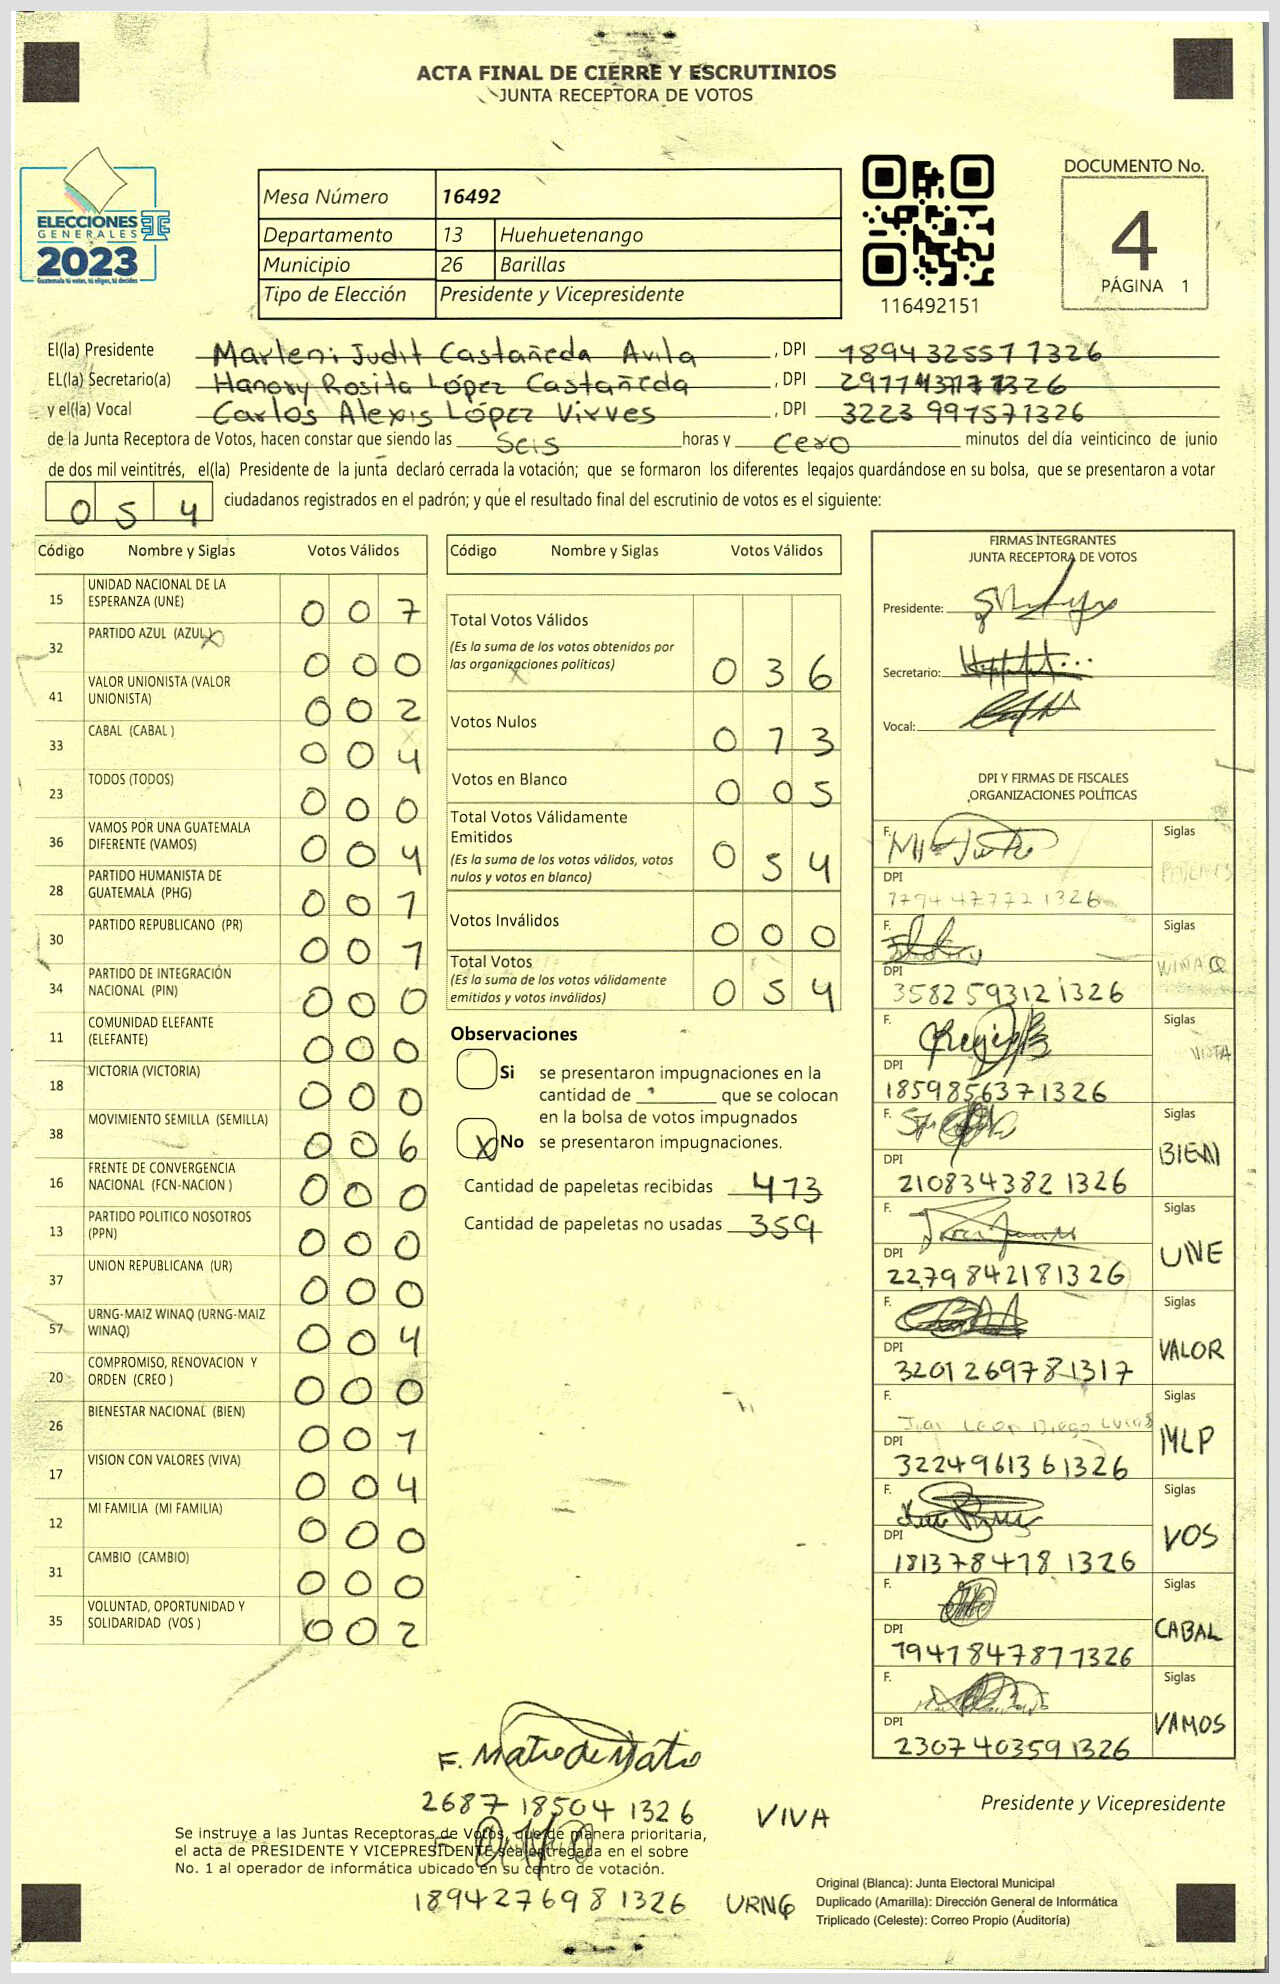 ACTA FINAL DE CIERRE Y ESCRUTINIOS
JUNTA RECEPTORA DE VOTOS
ELECCIONES
GENERALES
2023
Guatemala tú votas, tú eliges, tú decides
Mesa Número 16492
Departamento 13 Huehuetenango
Municipio 26 Barillas
Tipo de Elección Presidente y Vicepresidente
116492151
DOCUMENTO No.
4
PÁGINA 1
El(la) Presidente Marleni Judit Castañeda Avila , DPI 1894325571326
EL(la) Secretario(a) Rosita López Castañeda , DPI
y el(la) Vocal Carlos Alexis López Virves , DPI 3223997571326
de la Junta Receptora de Votos, hacen constar que siendo las Seis horas y Cero minutos del día veinticinco de junio
de dos mil veintitrés, el(la) Presidente de la junta declaró cerrada la votación; que se formaron los diferentes legajos guardándose en su bolsa, que se presentaron a votar
054 ciudadanos registrados en el padrón; y que el resultado final del escrutinio de votos es el siguiente:
Código Nombre y Siglas Votos Válidos
15 UNIDAD NACIONAL DE LA ESPERANZA (UNE) 007
32 PARTIDO AZUL (AZUL) 000
41 VALOR UNIONISTA (VALOR UNIONISTA) 002
33 CABAL (CABAL ) 004
23 TODOS (TODOS) 000
36 VAMOS POR UNA GUATEMALA DIFERENTE (VAMOS) 004
28 PARTIDO HUMANISTA DE GUATEMALA (PHG) 001
30 PARTIDO REPUBLICANO (PR) 001
34 PARTIDO DE INTEGRACIÓN NACIONAL (PIN) 000
11 COMUNIDAD ELEFANTE (ELEFANTE) 000
18 VICTORIA (VICTORIA) 000
38 MOVIMIENTO SEMILLA (SEMILLA) 006
16 FRENTE DE CONVERGENCIA NACIONAL (FCN-NACION ) 000
13 PARTIDO POLITICO NOSOTROS (PPN) 000
37 UNION REPUBLICANA (UR) 000
57 URNG-MAIZ WINAQ (URNG-MAIZ WINAQ) 004
20 COMPROMISO, RENOVACION Y ORDEN (CREO ) 000
26 BIENESTAR NACIONAL (BIEN) 001
17 VISION CON VALORES (VIVA) 004
12 MI FAMILIA (MI FAMILIA) 000
31 CAMBIO (CAMBIO) 000
35 VOLUNTAD, OPORTUNIDAD Y SOLIDARIDAD (VOS ) 002
Código Nombre y Siglas Votos Válidos
Total Votos Válidos 036
(Es la suma de los votos obtenidos por
las organizaciones políticas)
Votos Nulos 013
Votos en Blanco 005
Total Votos Válidamente
Emitidos 054
(Es la suma de los votos válidos, votos
nulos y votos en blanco)
Votos Inválidos 000
Total Votos 054
(Es la suma de los votos válidamente
emitidos y votos inválidos)
Observaciones
Si se presentaron impugnaciones en la
cantidad de ________ que se colocan
en la bolsa de votos impugnados
X No se presentaron impugnaciones.
Cantidad de papeletas recibidas 413
Cantidad de papeletas no usadas 359
FIRMAS INTEGRANTES
JUNTA RECEPTORA DE VOTOS
Presidente:
Secretario:
Vocal:
DPI Y FIRMAS DE FISCALES
ORGANIZACIONES POLÍTICAS
F. Siglas
DPI
F. Siglas WINAQ
DPI 3582593121326
F. Siglas
DPI 1859856371326
F. Siglas BIEN
DPI 2108343821326
F. Siglas UNE
DPI 2279842181326
F. Siglas VALOR
DPI 3201269781317
F. Siglas MLP
DPI 3224961361326
F. Siglas VOS
DPI 1813784781326
F. Siglas CABAL
DPI 1941847871326
F. Siglas VAMOS
DPI 2307403591326
F. Mateo de Mateo
2687185041326 VIVA
Se instruye a las Juntas Receptoras de Votos, que de manera prioritaria,
el acta de PRESIDENTE Y VICEPRESIDENTE sea entregada en el sobre
No. 1 al operador de informática ubicado en su centro de votación.
1894276981326 URNG
Presidente y Vicepresidente
Original (Blanca): Junta Electoral Municipal
Duplicado (Amarilla): Dirección General de Informática
Triplicado (Celeste): Correo Propio (Auditoría)